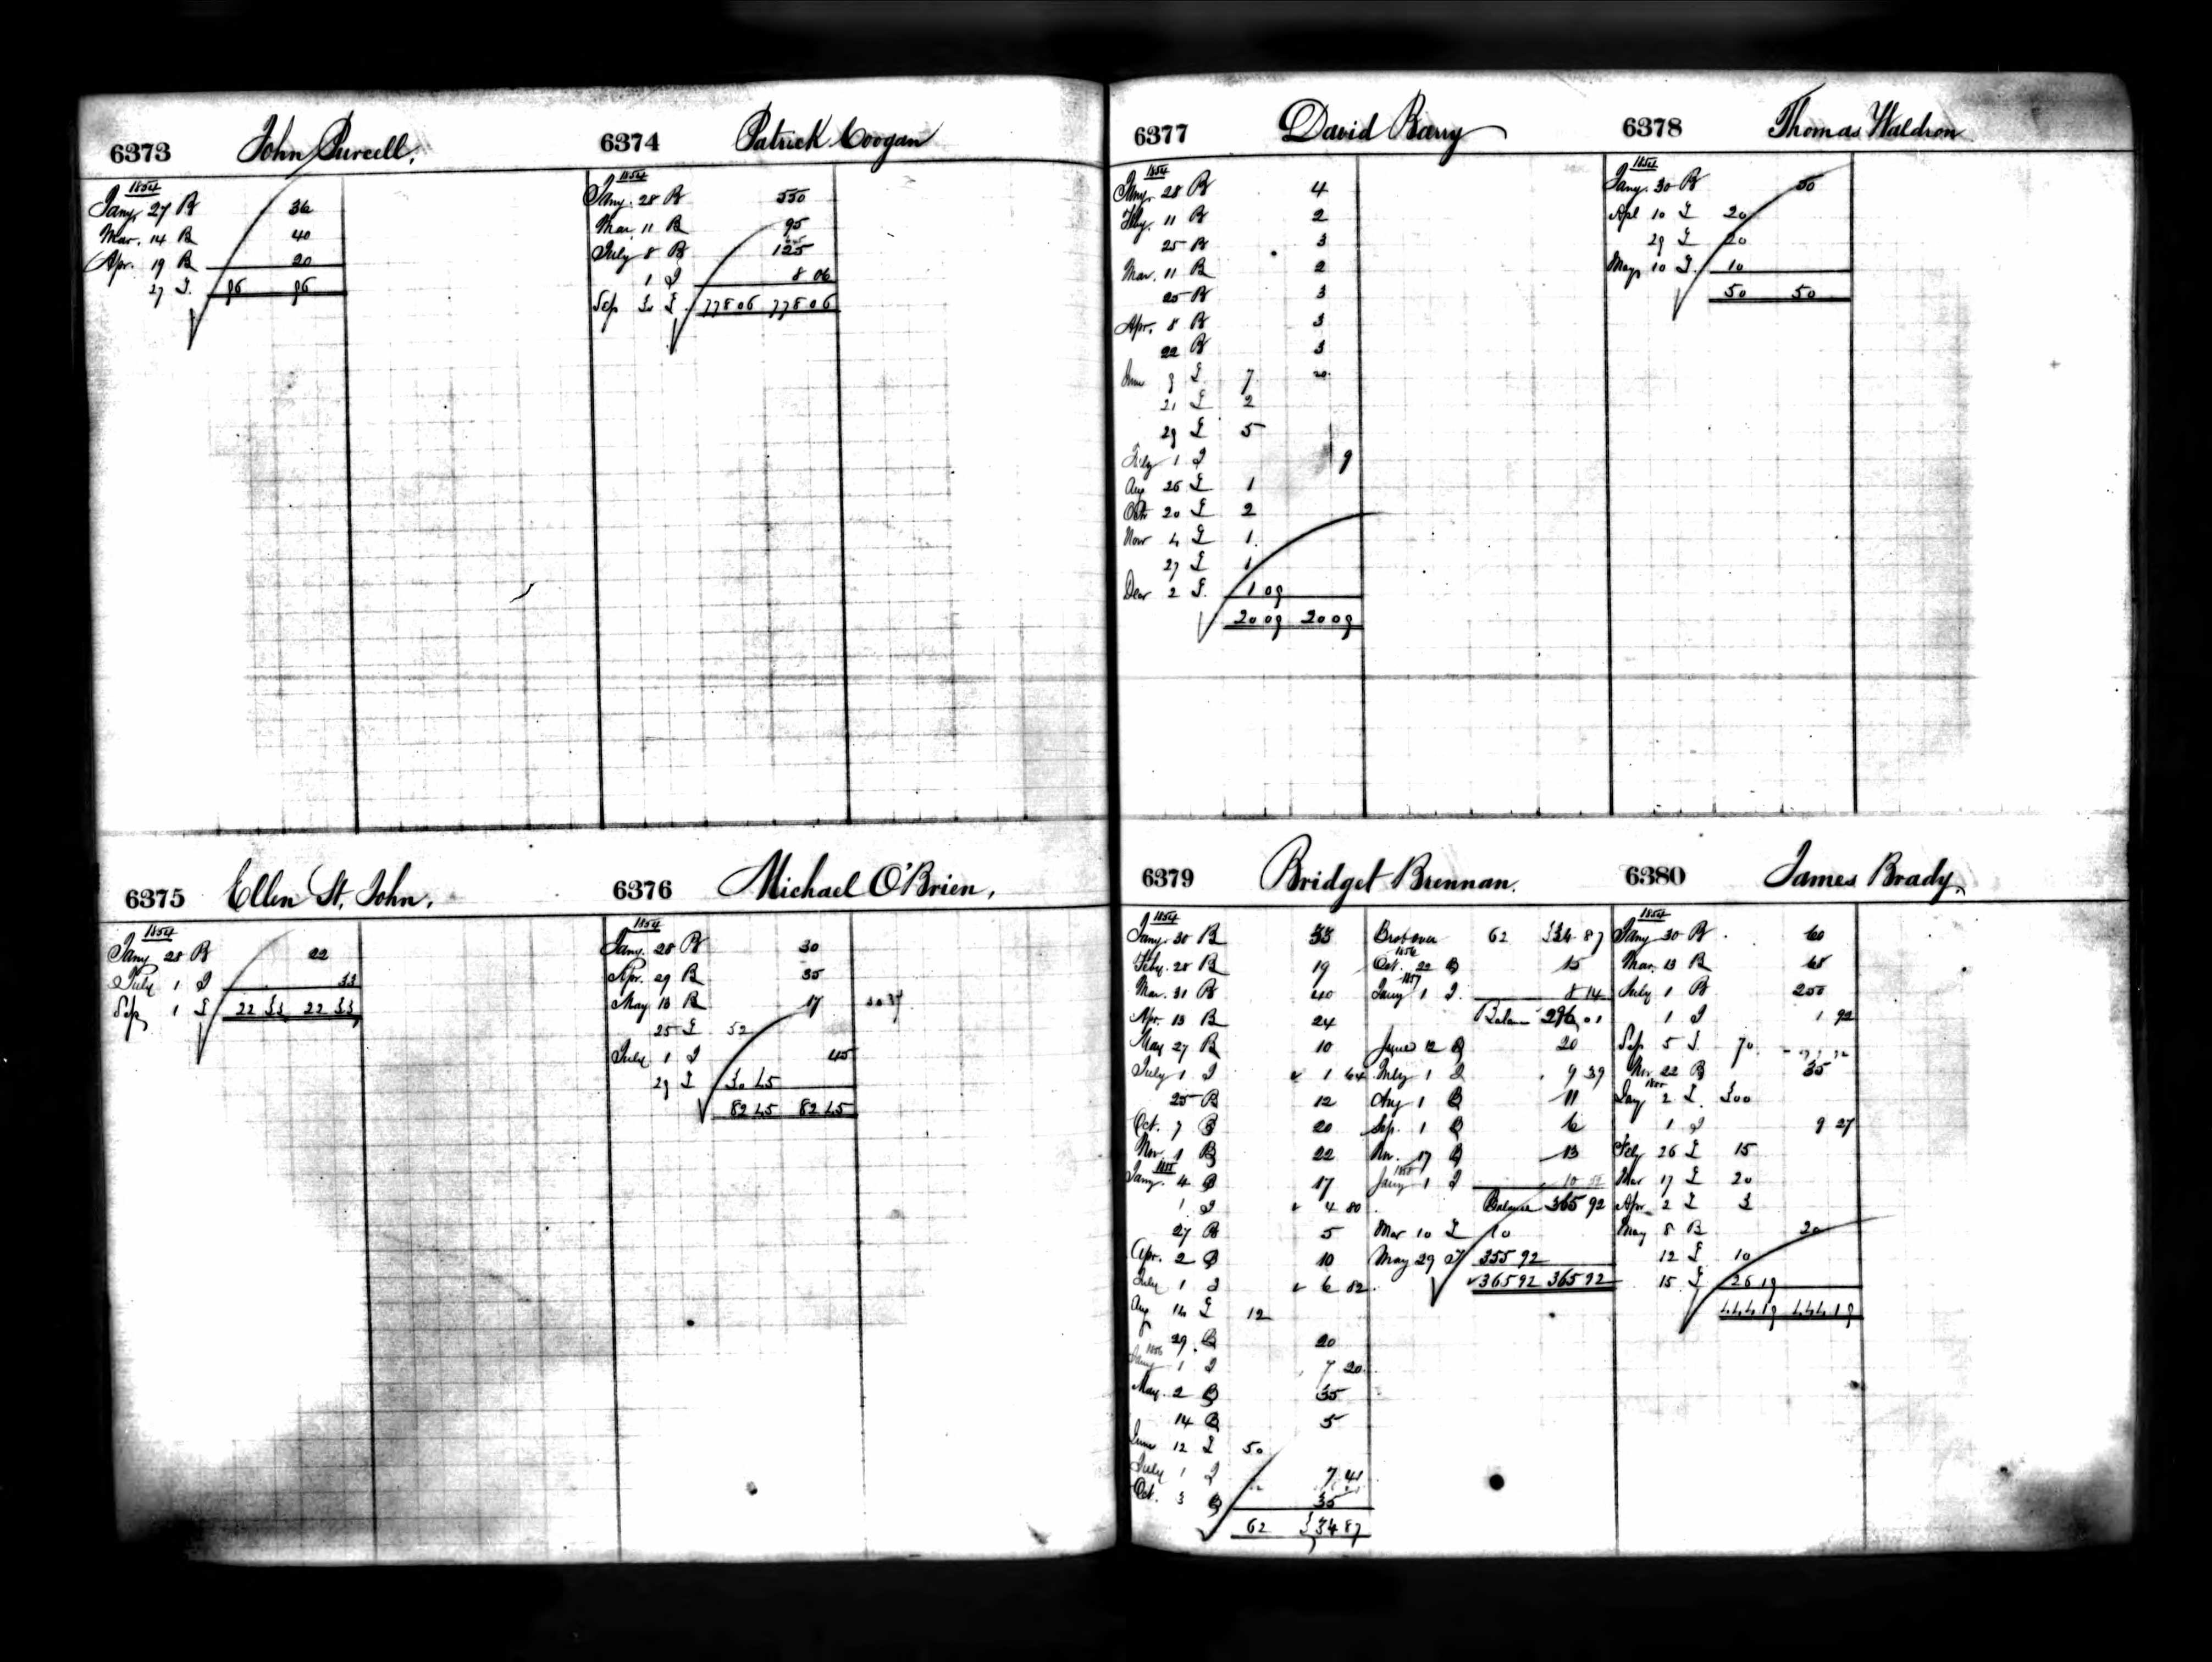 6373 John Purcell.
1854
Jany. 27 B 36
Mar. 14 B 40
Apr. 19 B 20
27 £ 96 96
6374 Patrick Coogan
1854
Jany. 28 B 550
Mar 11 B 95
July 8 B 125
1 I 8 06
Sep 30 £ 778 06 778 06
6375 Ellen St. John.
1854
Jany 28 B 22
July 1 I 33
Sep 1 £ 22 33 22 33
6376 Michael O'Brien.
1854
Jany. 28 B 30
Apr. 29 B 35
May 13 B 17
25 £ 52
July 1 I 45
29 £ 30 45
82 45 82 45
6377 David Barry
1854
Jany. 28 B 4
Feby. 11 B 2
25 B 3
Mar. 11 B 2
25 B 3
Apr. 8 B 3
22 B 3
June 9 £ 7 20
21 £ 2
29 £ 5
July 1 I 9
Aug 26 £ 1
Octr 20 £ 2
Novr 4 £ 1
27 £ 1
Decr 2 £ 1 09
20 09 20 09
6378 Thomas Waldron
1854
Jany. 30 B 50
Apl 10 £ 20
29 £ 20
May 10 £ 10
50 50
6379 Bridget Brennan.
1854
Jany. 30 B 33
Feby. 28 B 19
Mar. 31 B 40
Apr. 13 B 24
May 27 B 10
July 1 I 1 64
25 B 12
Oct. 7 B 20
Nov. 1 B 22
1855
Jany. 4 B 17
1 I 4 80
27 B 5
Apr. 2 B 10
July 1 I 6 82
Aug 14 £ 12
29 B 20
1856
Jany 1 I 7 20
May. 2 B 35
14 B 5
June 12 £ 50
July 1 I 7 41
Oct. 3 B 35
62 334 87
Brot over 62 334 87
1856
Oct. 22 B 15
1857
Jany 1 I 8 14
Balance 296 01
June 12 B 20
July 1 I 9 39
Aug 1 B 11
Sep. 1 B 6
Nov. 17 B 13
1858
Jany 1 I 10
Balance 365 92
Mar 10 £ 10
May 29 £ 355 92
365 92 365 92
6380 James Brady.
1854
Jany 30 B 60
Mar. 13 B 68
July 1 B 250
1 I 1 92
Sep 5 £ 70
Nov 22 B 35
1855
Jany 2 £ 300
1 I 9 27
Feby 26 £ 15
Mar 17 £ 20
Apr 2 £ 3
May 8 B 20
12 £ 10
15 £ 26 19
444 19 444 19